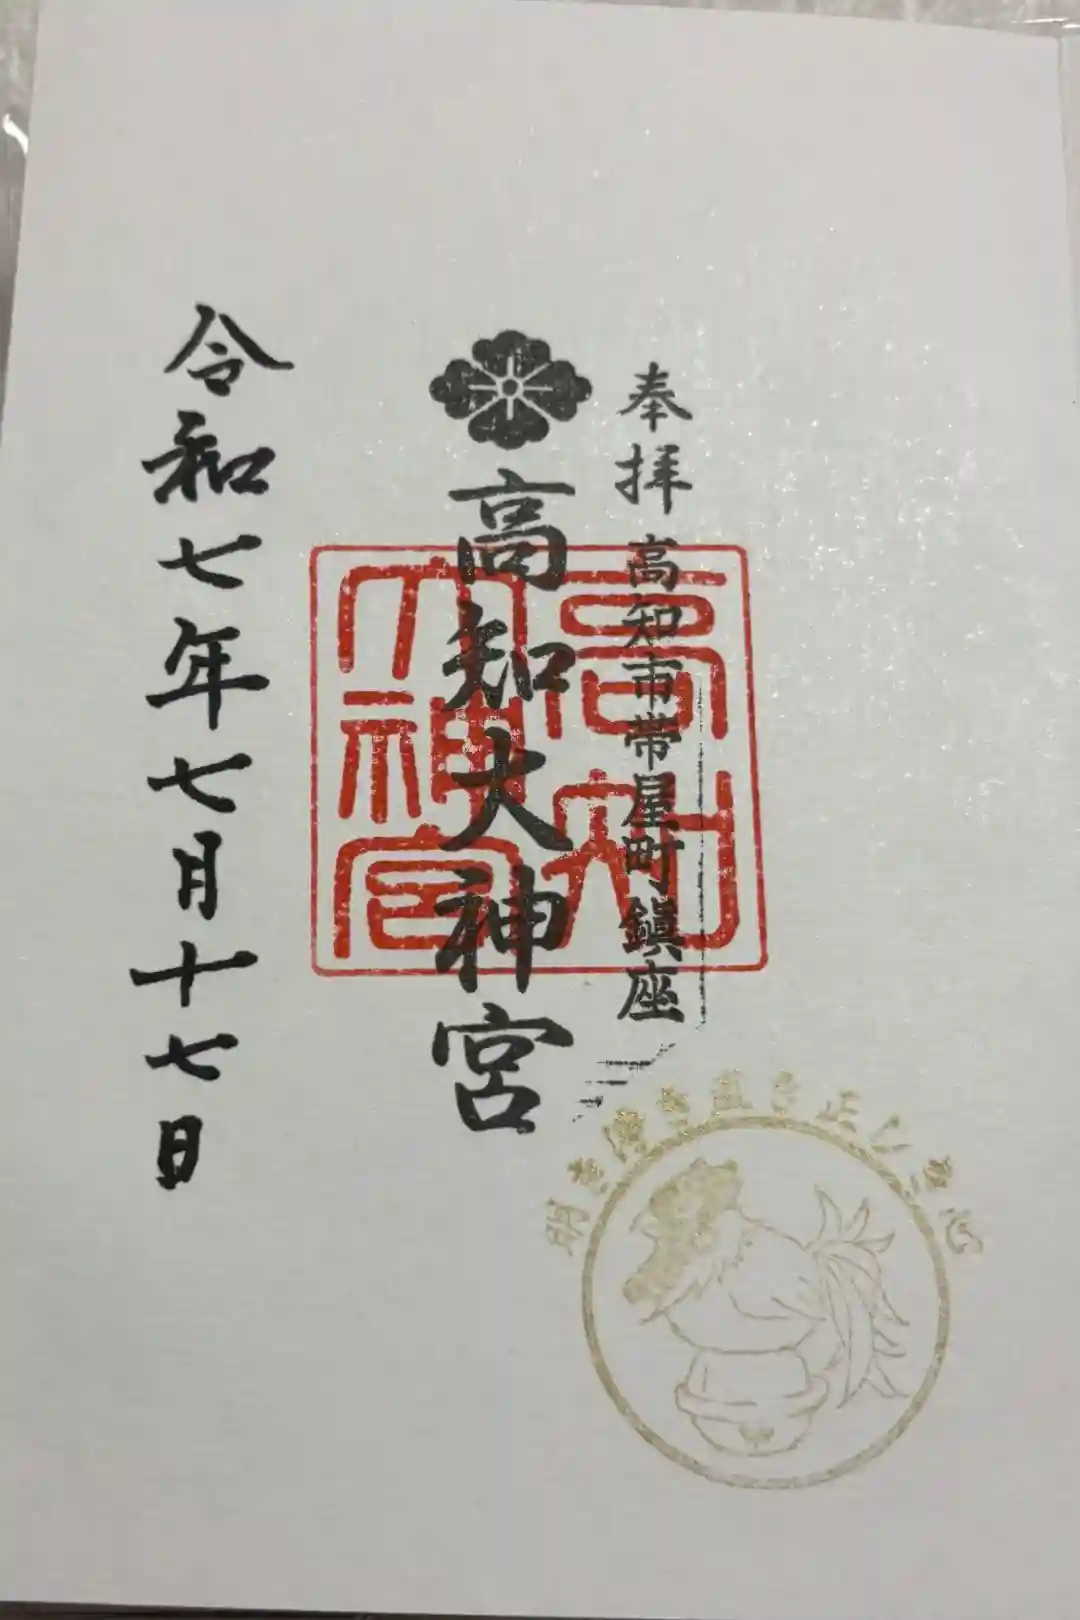 奉拝 高知市帯屋町鎮座
高知大神宮
高知
大神宮
令和七年七月十七日